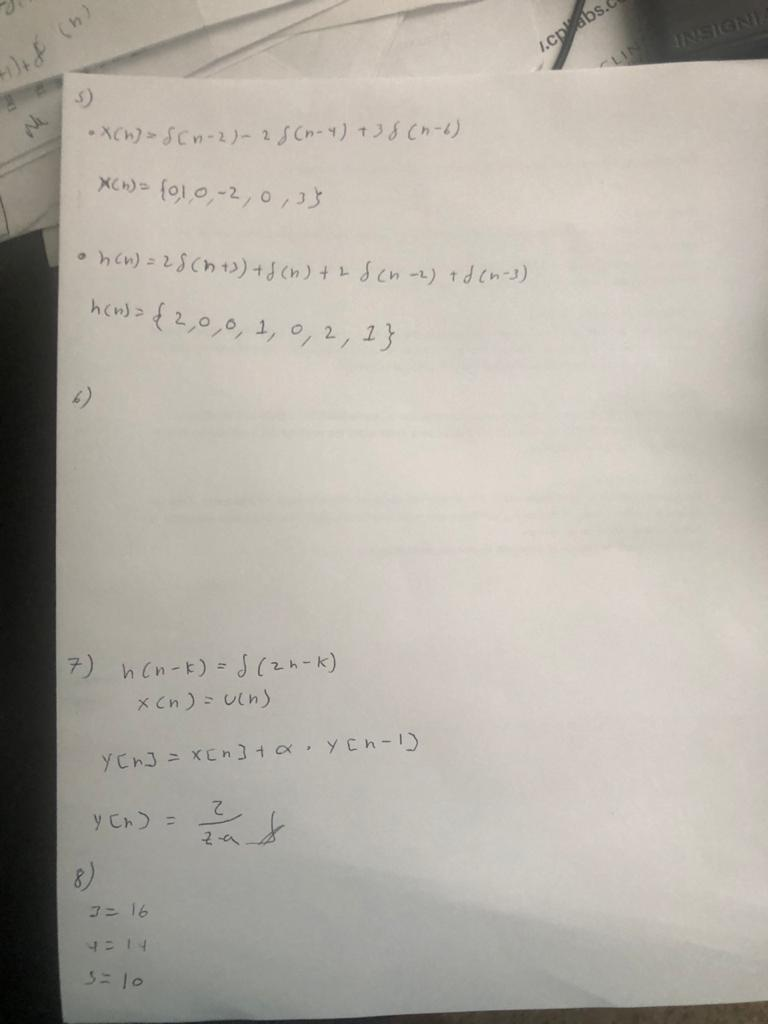 (n)
+1)+δ
/.cpllabs.c
CLIN
INSIGNI
5)
• x[n] = δ(n-2) - 2 δ(n-4) + 3 δ(n-6)
x(n) = {0,1,0,-2, 0, 3}
• h(n) = 2δ(n+3) + δ(n) + 2 δ(n-2) + δ(n-3)
h(n) = {2,0,0, 1, 0, 2, 1}
6)
7) h(n-k) = δ(2n-k)
x(n) = u(n)
y[n] = x[n] + α . y[n-1]
y(n) = z/z-a
8)
3 = 16
4 = 14
5 = 10